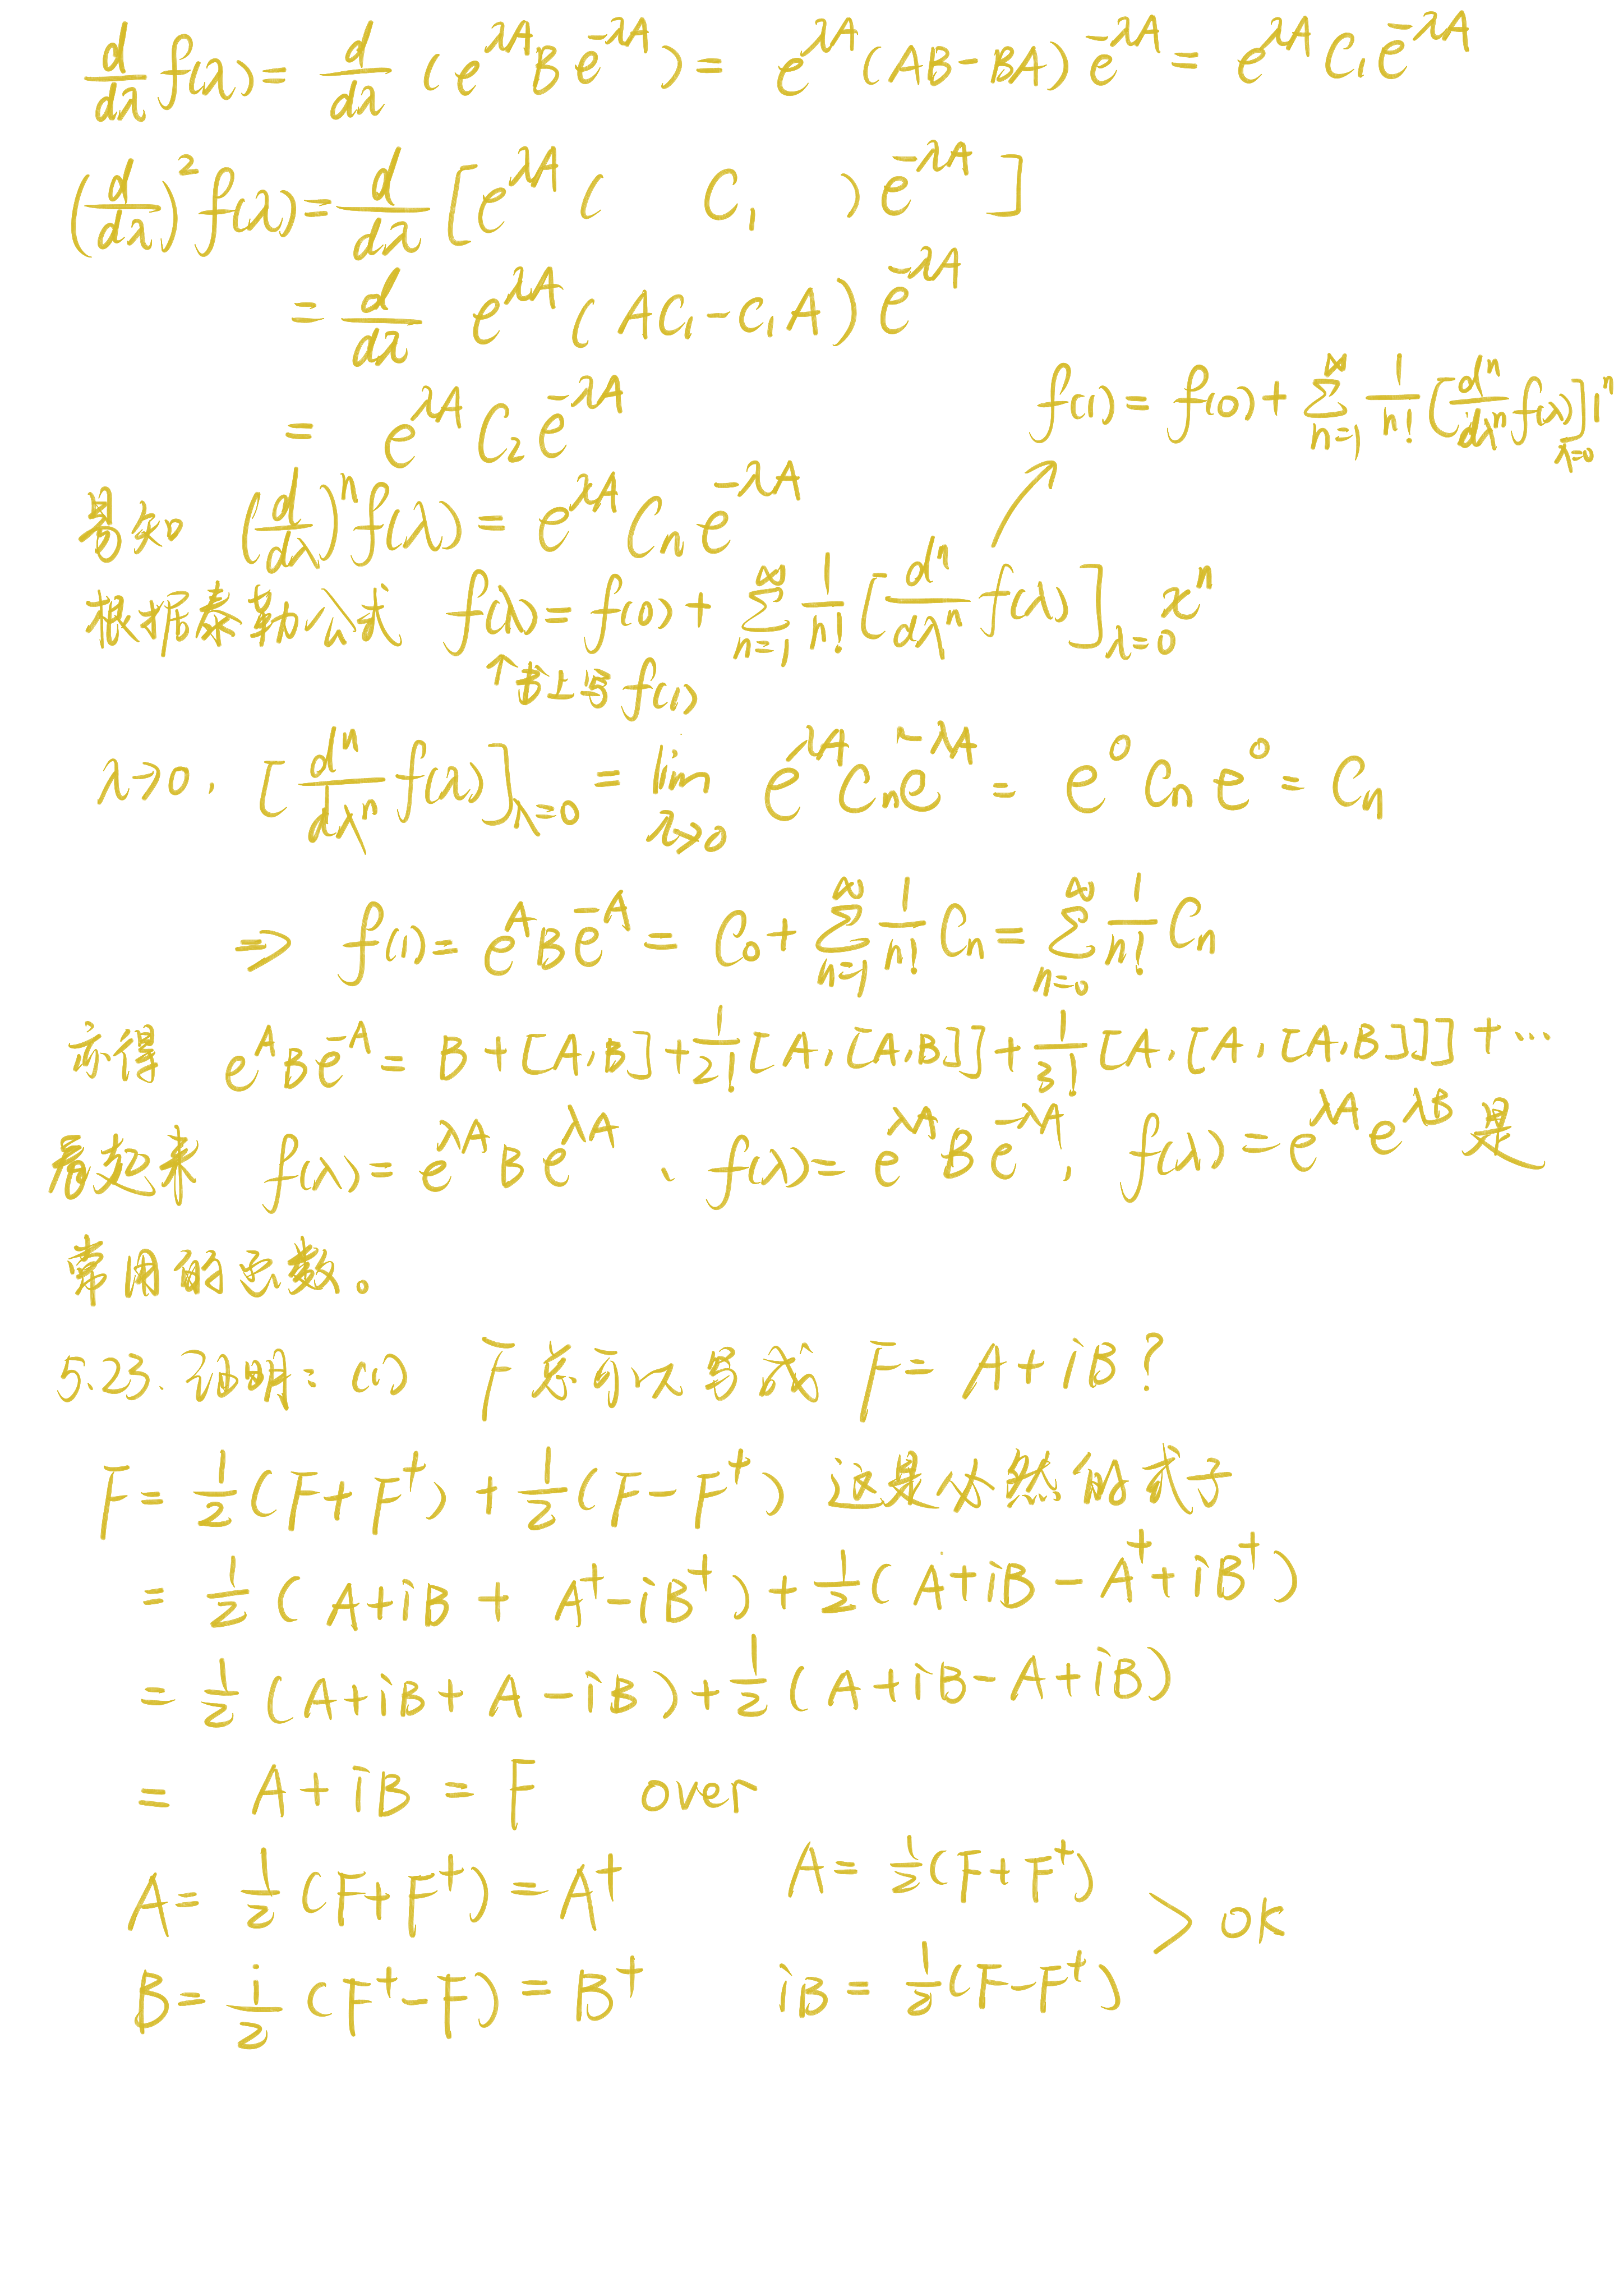 d/dλ f(λ) = d/dλ (e^{λA} B e^{-λA}) = e^{λA}(AB-BA)e^{-λA} = e^{λA} C₁ e^{-λA}
(d/dλ)² f(λ) = d/dλ [e^{λA}( C₁ )e^{-λA}]
= d/dλ e^{λA}(AC₁-C₁A)e^{-λA}
= e^{λA} C₂ e^{-λA}
f(1) = f(0) + Σ_{n=1}^{∞} 1/n! [d^n/dλ^n f(λ)]_{λ=0} 1^n
易知 (d/dλ)^n f(λ) = e^{λA} C_n e^{-λA}
根据泰勒公式 f(λ) = f(0) + Σ_{n=1}^{∞} 1/n! [d^n/dλ^n f(λ)]_{λ=0} x^n
↑ f(1)
λ→0, [d^n/dλ^n f(λ)]_{λ=0} = lim_{λ→0} e^{λA} C_n e^{-λA} = e^0 C_n e^0 = C_n
⇒ f(1) = e^A B e^{-A} = C₀ + Σ_{n=1}^{∞} 1/n! C_n = Σ_{n=0}^{∞} 1/n! C_n
亦得 e^A B e^{-A} = B + [A,B] + 1/2! [A,[A,B]] + 1/3! [A,[A,[A,B]]] + ···
看起来 f(λ) = e^{λA} B e^{λA}、f(λ) = e^{λA} B e^{-λA}, f(λ) = e^{λA} e^{λB} 是
常用的函数。
5.23. 证明: (1) F 总可以写成 F = A + iB ?
F = 1/2 (F+F†) + 1/2 (F-F†) 这是必然的式子
= 1/2 (A+iB + A†-iB†) + 1/2 (A+iB - A†+iB†)
= 1/2 (A+iB + A - iB) + 1/2 (A+iB-A+iB)
= A + iB = F over
A = 1/2 (F+F†) = A† A = 1/2 (F+F†)
> OK
B = i/2 (F†-F) = B† iB = 1/2 (F-F†)